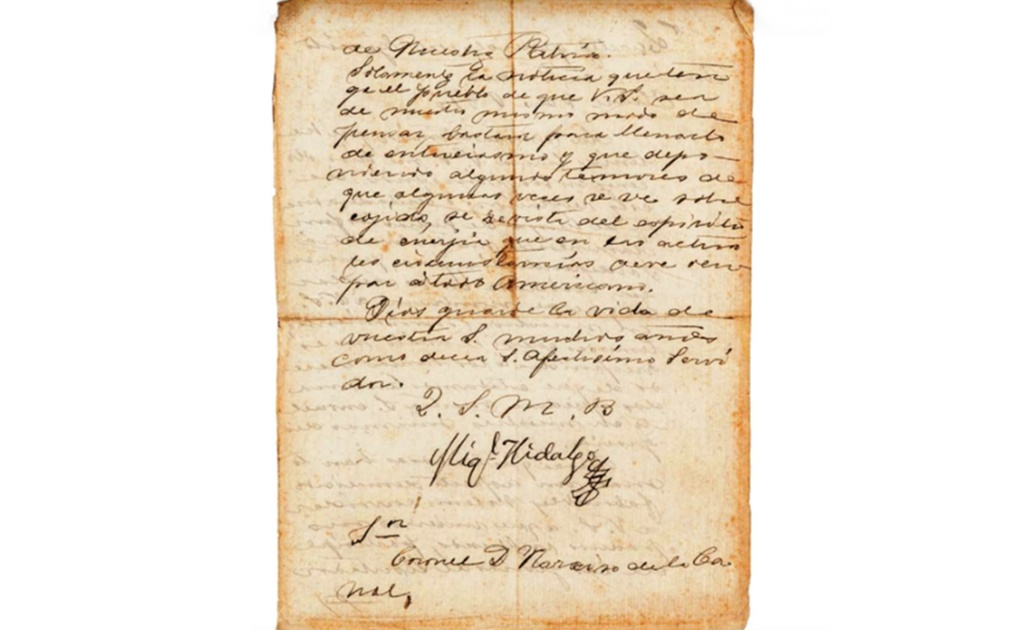 de Nuestra Patria.
Solamente la noticia que ten
ga el pueblo de que V.S. sea
de nuestro mismo modo de
pensar, bastará para llenarlo
de entuciasmo y que depo-
niendo algunos temores de
que algunas veces se ve sobre
cojido, se revista del espiritu
de energia que en las actua
les circunstancias deve reu
par á todo Americano.
Dios guarde la vida de
vuestra S. muchos años
como decea S. afectisimo Servi
dor.
Q. S. M. B
Migl. Hidalgo
Sor
Coronel D. Narciso de la Ca
nal,